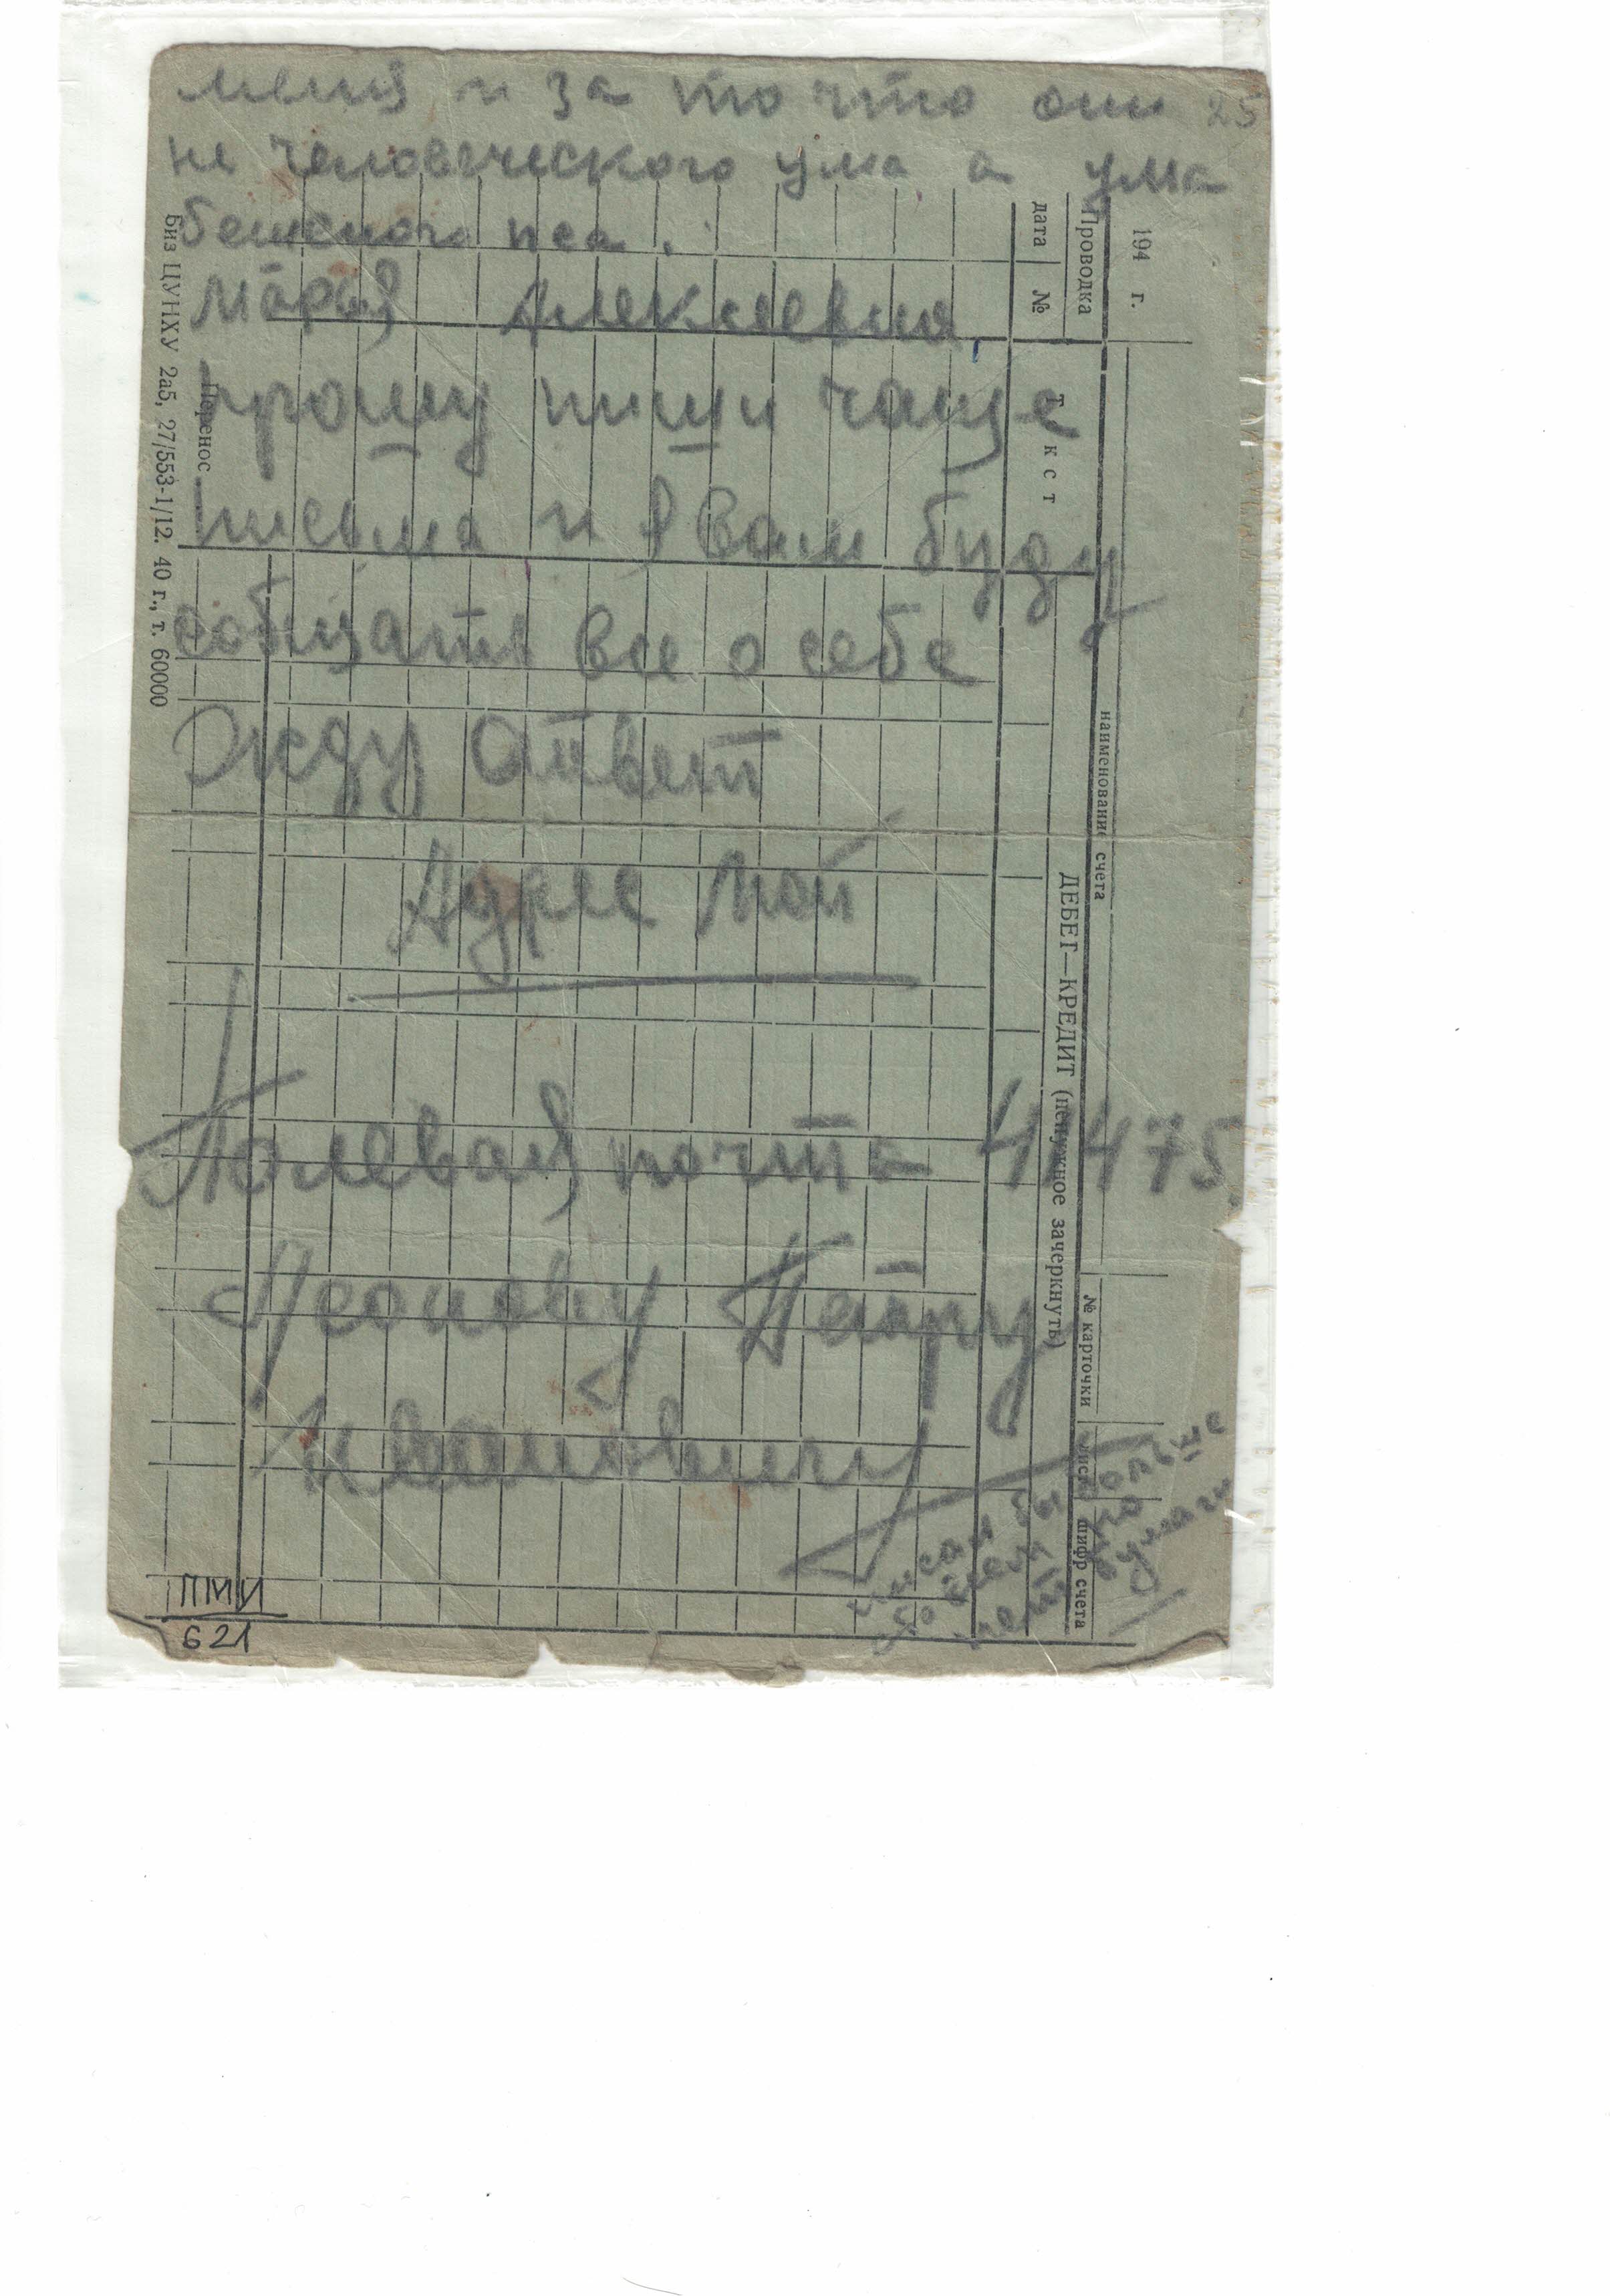 меня и за то что они 25
не человеческого ума а ума
бешеного пса.
Марья Алексеевна,
прошу пиши чаще
письма и я вам буду
собщать все о себе
Жду Ответ
Адрес мой
Полевая почта 41475.
Леонову Петру
Ивановичу
писал бы больше
да нет
бумаги
ПМИ
621
194 г.
наименование счета
№ карточки
лист
шифр счета
Проводка
ДЕБЕТ—КРЕДИТ (ненужное зачеркнуть)
дата
№
Текст
Перенос
Биз ЦУНХУ 2а5, 27/553-1/12. 40 г., т. 60000